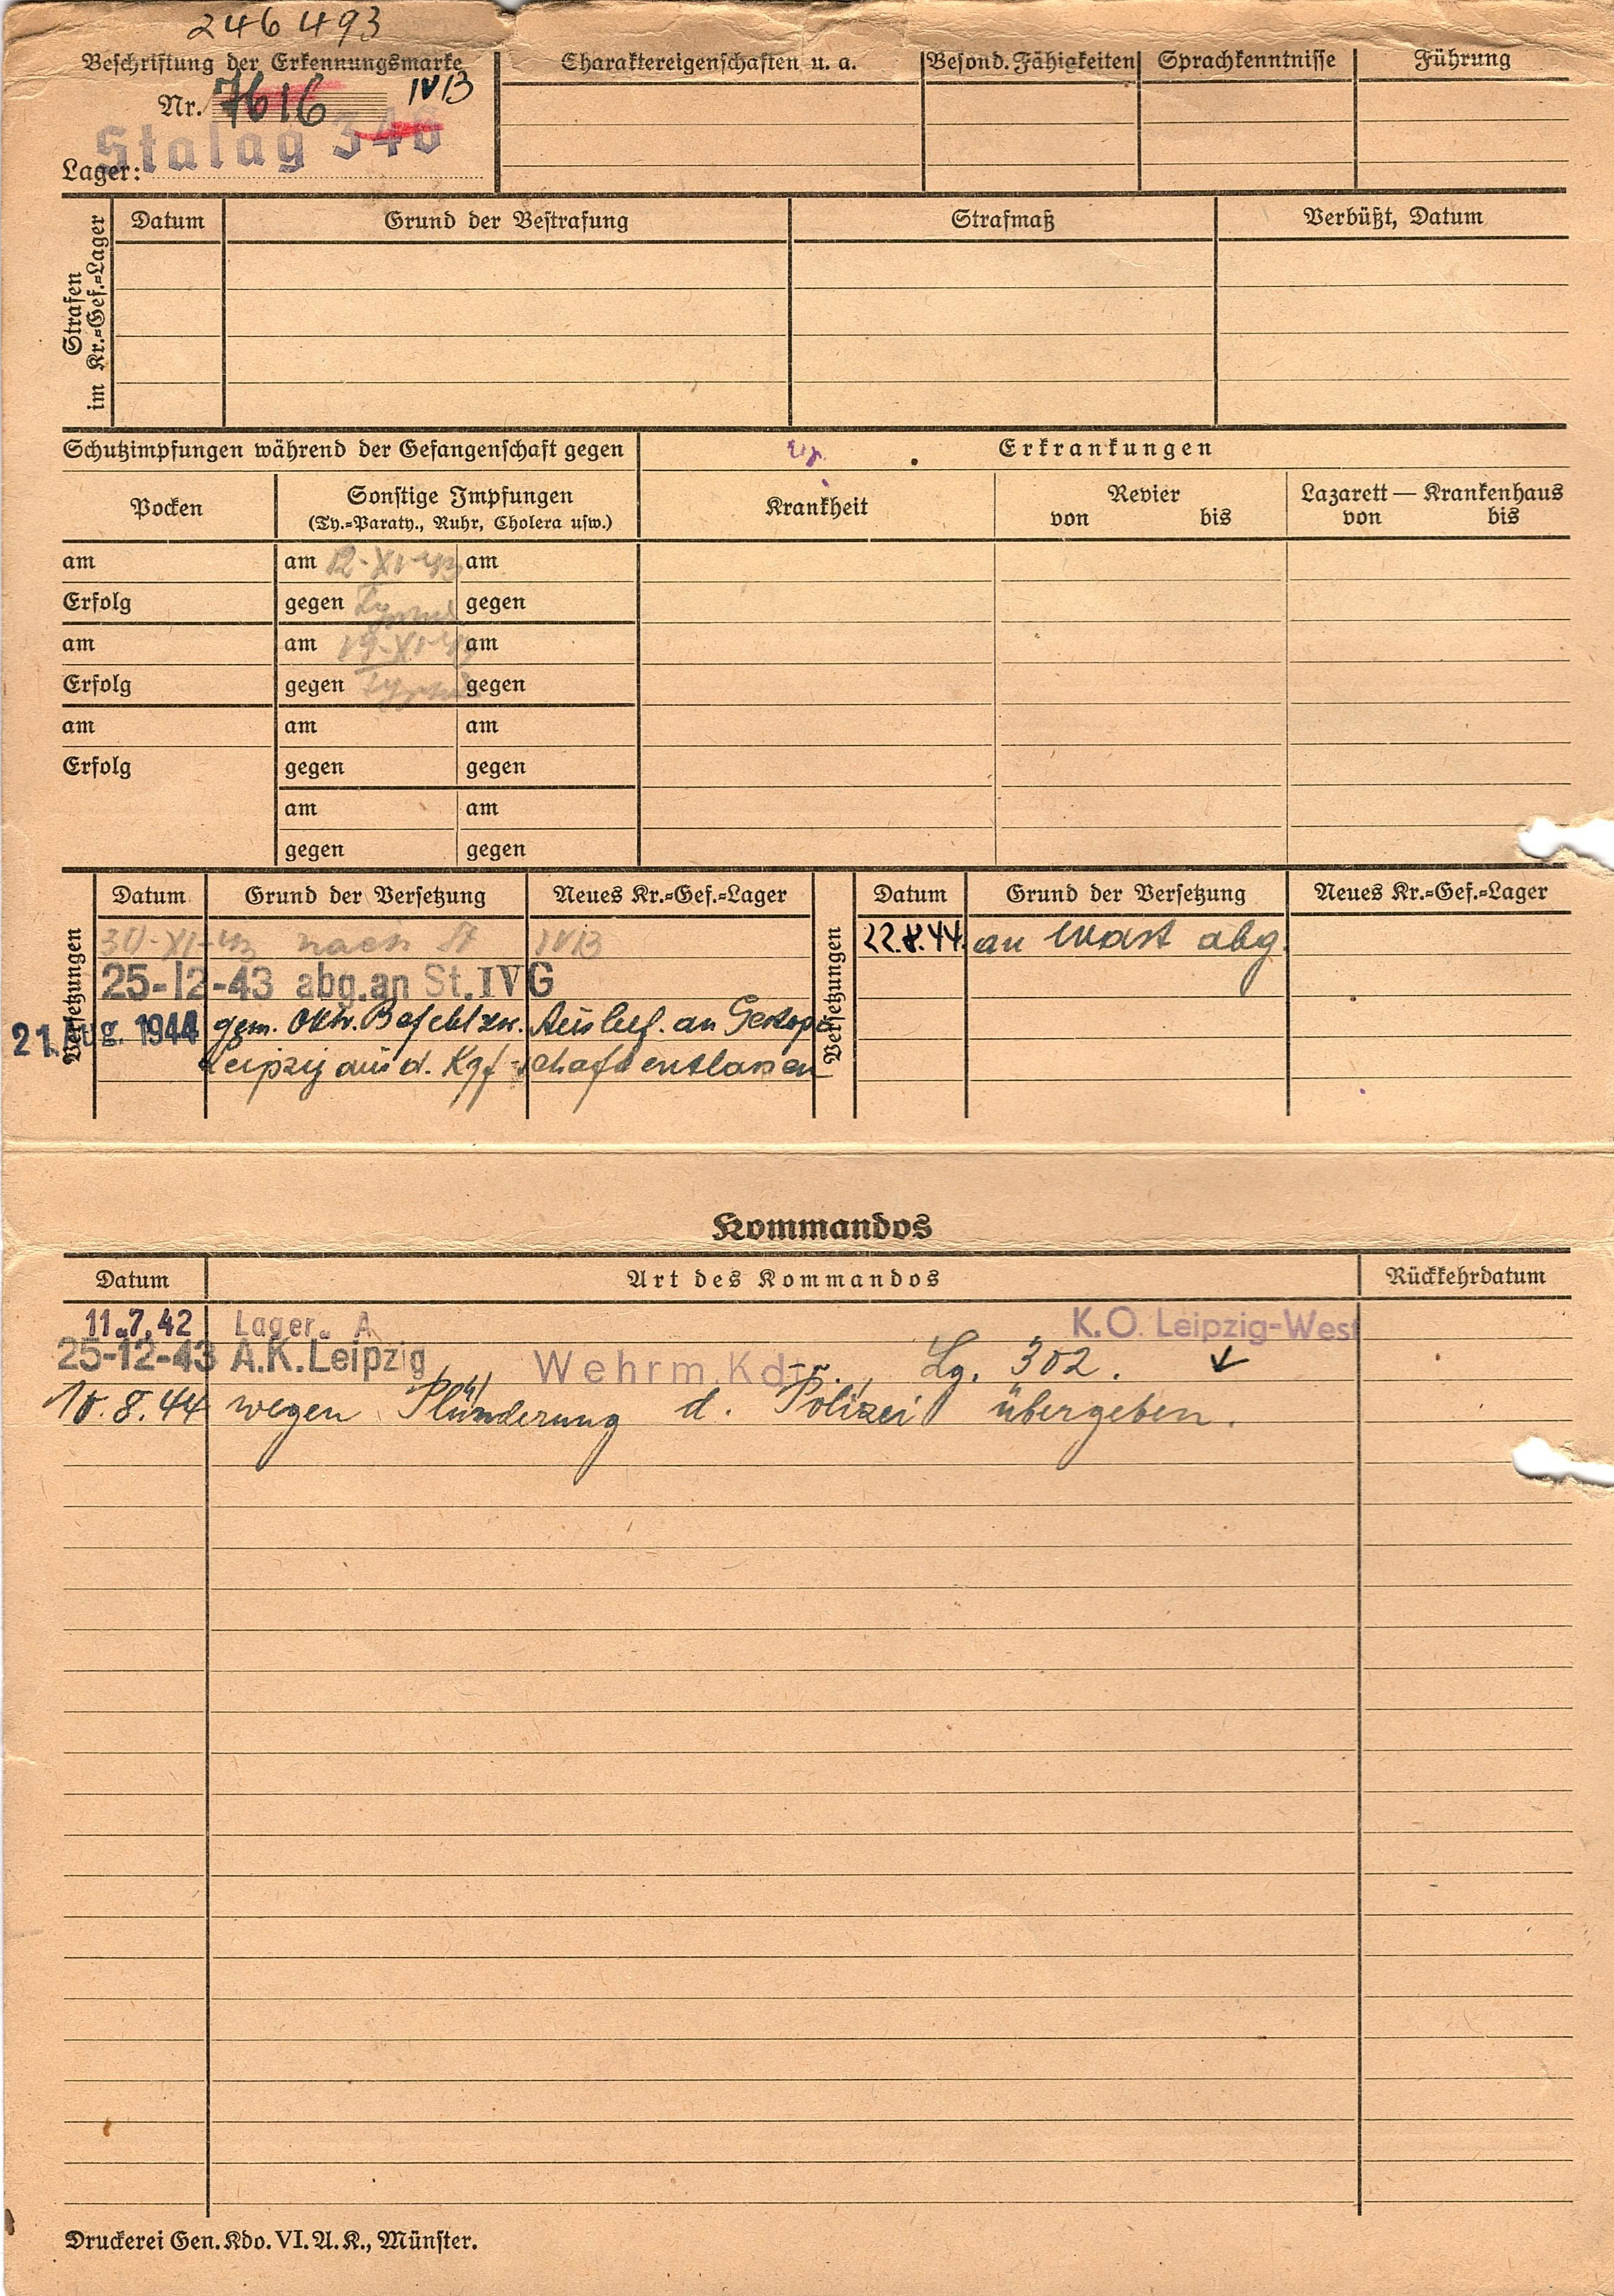 246493
Beschriftung der Erkennungsmarke
Nr. 7616 IV B
Stalag 346
Lager:
Charaktereigenschaften u. a.
Besond. Fähigkeiten
Sprachkenntnisse
Führung
Strafen
im Kr.=Gef.=Lager
Datum
Grund der Bestrafung
Strafmaß
Verbüßt, Datum
Schutzimpfungen während der Gefangenschaft gegen
Erkrankungen
Pocken
Sonstige Impfungen
(Ty.=Paraty., Ruhr, Cholera usw.)
Krankheit
Revier
von bis
Lazarett — Krankenhaus
von bis
am am 12-XI-43 am
Erfolg gegen gegen
am am 19-XI-43 am
Erfolg gegen gegen
am am am
Erfolg gegen gegen
am am
gegen gegen
Versetzungen
Datum Grund der Versetzung Neues Kr.=Gef.=Lager
30-XI-43 nach St IV B
25-12-43 abg. an St. IV G
21. Aug. 1944 gem. OKW. Befehl zw. Auslief. an Gestapo
Leipzig aus d. Kgf-schaft entlassen
Versetzungen
Datum Grund der Versetzung Neues Kr.=Gef.=Lager
22.8.44. an Wast abg.
Kommandos
Datum Art des Kommandos Rückkehrdatum
11.7.42 Lager A K.O. Leipzig-West
25-12-43 A.K. Leipzig Wehrm. Kdr. Lg. 302.
10.8.44 wegen Plünderung d. Polizei übergeben.
Druckerei Gen. Kdo. VI. A. K., Münster.